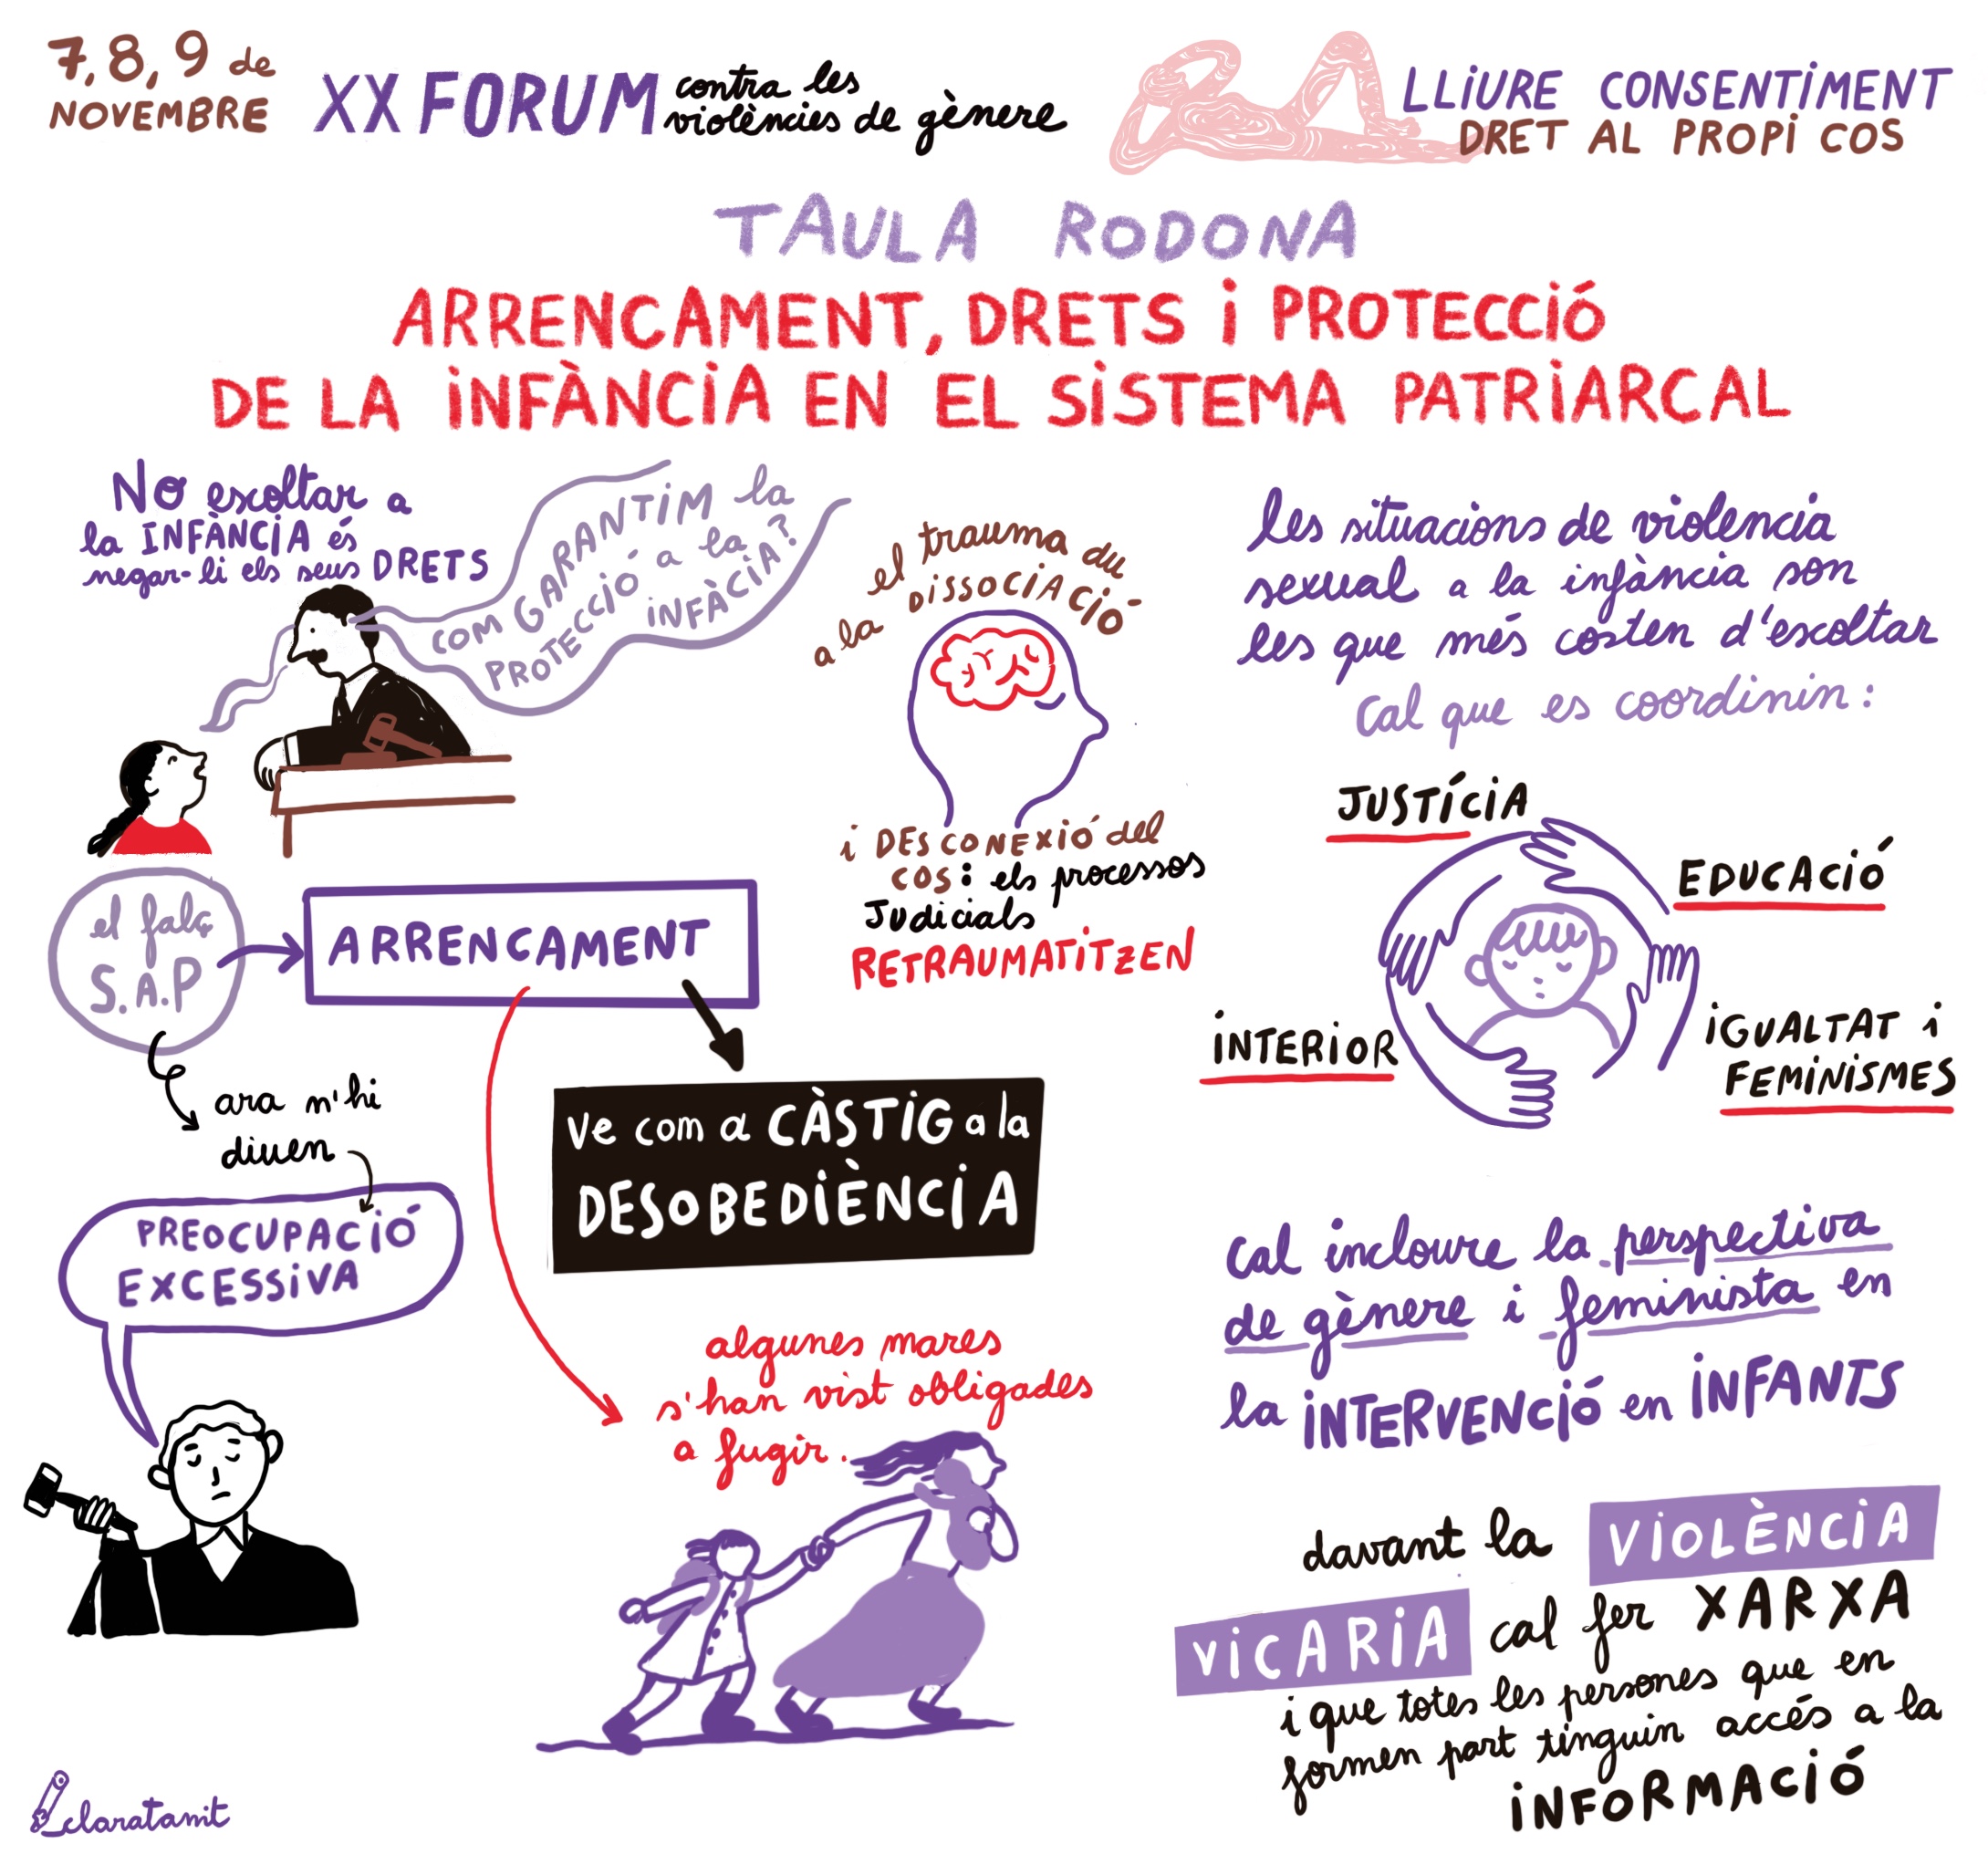 7, 8, 9 de
NOVEMBRE
XX FORUM contra les
violències de gènere
LLiURE CONSENTiMENT
DRET AL PROPi COS
TAULA RODONA
ARRENCAMENT, DRETS i PROTECCiÓ
DE LA iNFÀNCiA EN EL SiSTEMA PATRiARCAL
No escoltar a
la INFÀNCiA és
negar-li els seus DRETS
COM GARANTiM la
PROTECCIÓ a la
iNFÀCiA?
el trauma du
a la DiSSOCiACiÓ
i DESCONEXiÓ del
COS: els processos
Judicials
RETRAUMATiTZEN
les situacions de violencia
sexual a la infància son
les que més costen d'escoltar
Cal que es coordinin:
JUSTÍCiA
EDUCACiÓ
iNTERiOR
iGUALTAT i
FEMiNiSMES
el falç
S.A.P
ARRENCAMENT
ara n'hi
diuen
PREOCUPACiÓ
EXCESSiVA
Ve com a CÀSTiG a la
DESOBEDiÈNCiA
algunes mares
s'han vist obligades
a fugir.
Cal incloure la perspectiva
de gènere i feminista en
la iNTERVENCiÓ en iNFANTS
davant la ViOLÈNCiA
ViCARiA cal fer XARXA
i que totes les persones que en
formen part tinguin accés a la
iNFORMACiÓ
claratanit